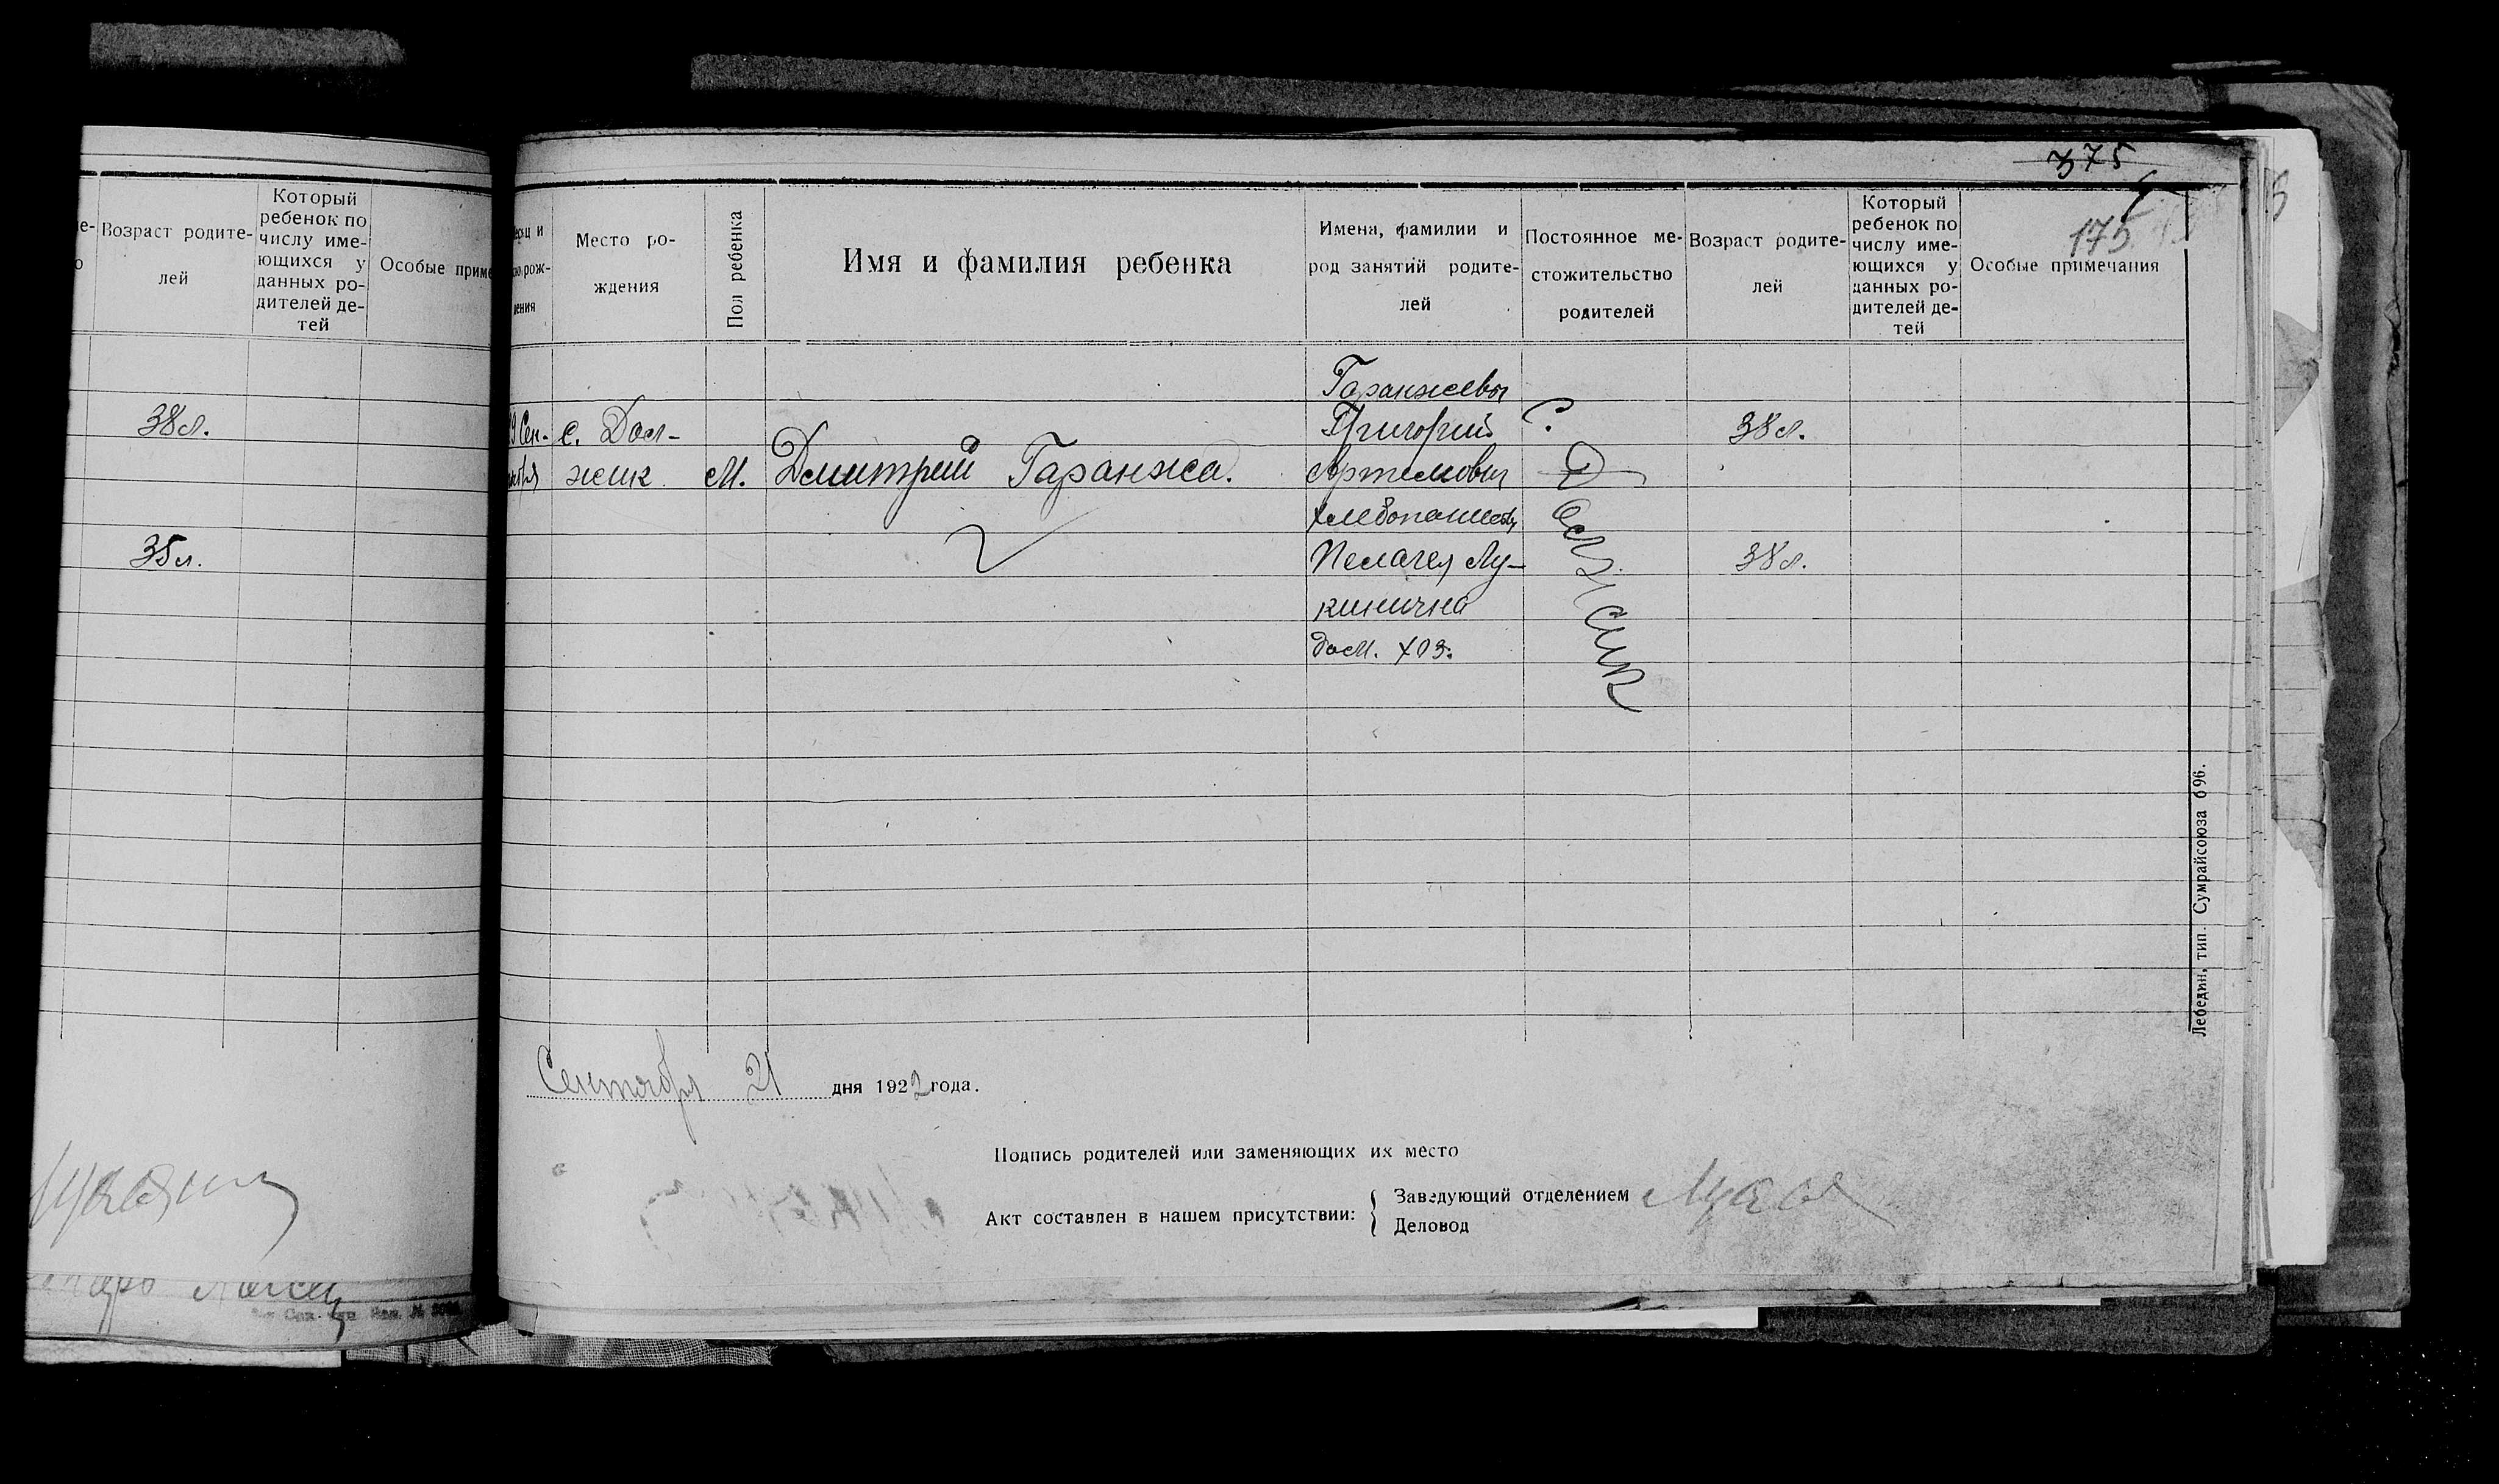 375
175
Возраст родите-
лей
Который
ребенок по
числу име-
ющихся у
данных ро-
дителей де-
тей
Особые приме
38 л.
35 л.
Место ро-
ждения
Пол ребенка
Имя и фамилия ребенка
Имена, фамилии и
род занятий родите-
лей
Постоянное ме-
стожительство
родителей
Возраст родите-
лей
Который
ребенок по
числу име-
ющихся у
данных ро-
дителей де-
тей
Особые примечания
9 Сен-
тября
с. Дол-
жик
М.
Дмитрий Гаранжа.
Гаранжевы
Григорий
Артемович
хлебопашец
Пелагея Лу-
кинична
дом. хоз.
С.
Должик
38 л.
38 л.
Сентября 21 дня 1922 года.
Подпись родителей или заменяющих их место
Акт составлен в нашем присутствии:
Заведующий отделением
Деловод
Лебедин, тип. Сумрайсоюза 696.